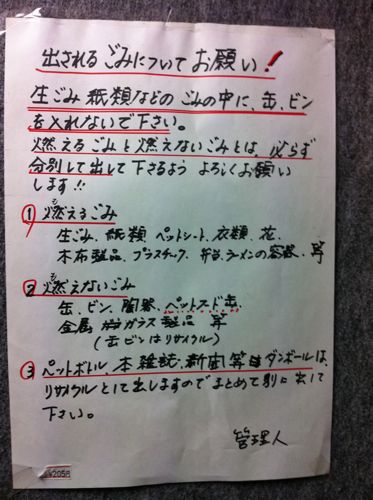 出されるごみについてお願い!
生ごみ 紙類などの ごみの中に、缶、ビン
を入れないで下さい。
燃えるごみと燃えないごみとは、必らず
分別して出して下さるよう よろしくお願い
します!!
① 燃えるごみ
生ごみ、紙類 ペットシート、衣類、花、
木布製品、プラスチック、弁当、ラーメンの容器、等
② 燃えないごみ
缶、ビン、陶器、ペットフード缶、
金属 ガラス製品 等
(缶ビンはリサイクル)
③ ペットボトル、本雑誌、新聞等ダンボールは、
リサイクルとして出しますのでまとめて別に出して
下さい。
管理人